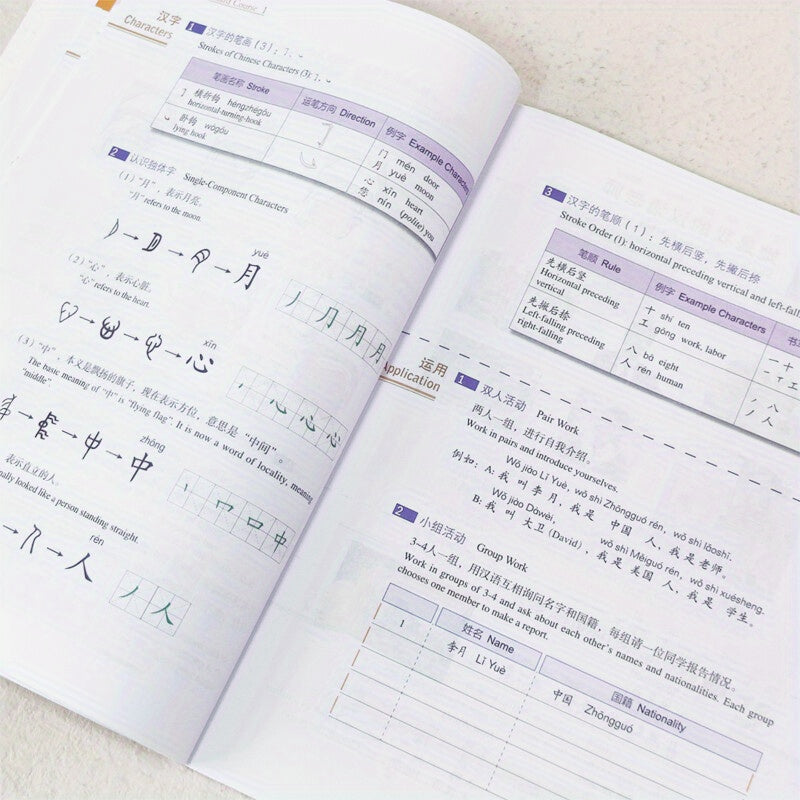 Course 1
汉字
Characters
1 汉字的笔画(3):㇆、㇃
Strokes of Chinese Characters (3): ㇆、㇃
笔画名称 Stroke 运笔方向 Direction 例字 Example Characters
㇆ 横折钩 héngzhégōu
horizontal-turning-hook
门 mén door
月 yuè moon
㇃ 卧钩 wògōu
lying hook
心 xīn heart
您 nín (polite) you
2 认识独体字 Single-Component Characters
(1)“月”,表示月亮。
“月” refers to the moon.
yuè
→ → → 月
(2)“心”,表示心脏。
“心” refers to the heart.
xīn
→ → → 心
(3)“中”,本义是飘扬的旗子,现在表示方位,意思是“中间”。
The basic meaning of “中” is “flying flag”. It is now a word of locality, meaning
“middle”.
zhōng
→ → 中 → 中
表示直立的人。
looked like a person standing straight.
rén
→ → 人
3 汉字的笔顺(1):先横后竖,先撇后捺
Stroke Order (1): horizontal preceding vertical and left-fall
笔顺 Rule 例字 Example Characters
先横后竖
Horizontal preceding
vertical
十 shí ten
工 gōng work, labor
先撇后捺
Left-falling preceding
right-falling
八 bā eight
人 rén human
运用
Application
1 双人活动 Pair Work
两人一组,进行自我介绍。
Work in pairs and introduce yourselves.
Wǒ jiào Lǐ Yuè, wǒ shì Zhōngguó rén, wǒ shì lǎoshī.
例如:A:我 叫 李 月,我 是 中国 人,我 是 老师。
Wǒ jiào Dàwèi, wǒ shì Měiguó rén, wǒ shì xuésheng.
B:我 叫 大卫(David),我 是 美国 人,我 是 学生。
2 小组活动 Group Work
3~4人一组,用汉语互相询问名字和国籍,每组请一位同学报告情况。
Work in groups of 3-4 and ask about each other's names and nationalities. Each group
chooses one member to make a report.
姓名 Name 国籍 Nationality
1 李月 Lǐ Yuè 中国 Zhōngguó